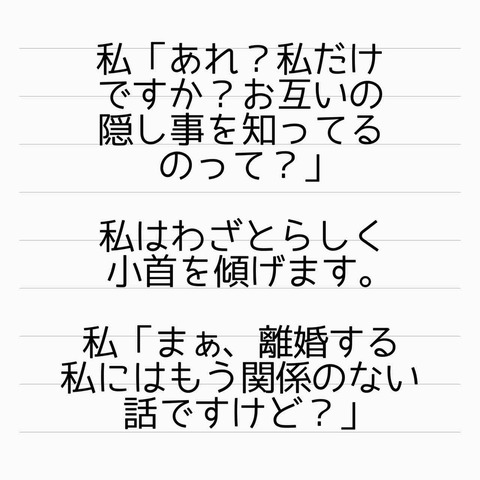 私「あれ？私だけ
ですか？お互いの
隠し事を知ってる
のって？」
私はわざとらしく
小首を傾げます。
私「まぁ、離婚する
私にはもう関係のない
話ですけど？」